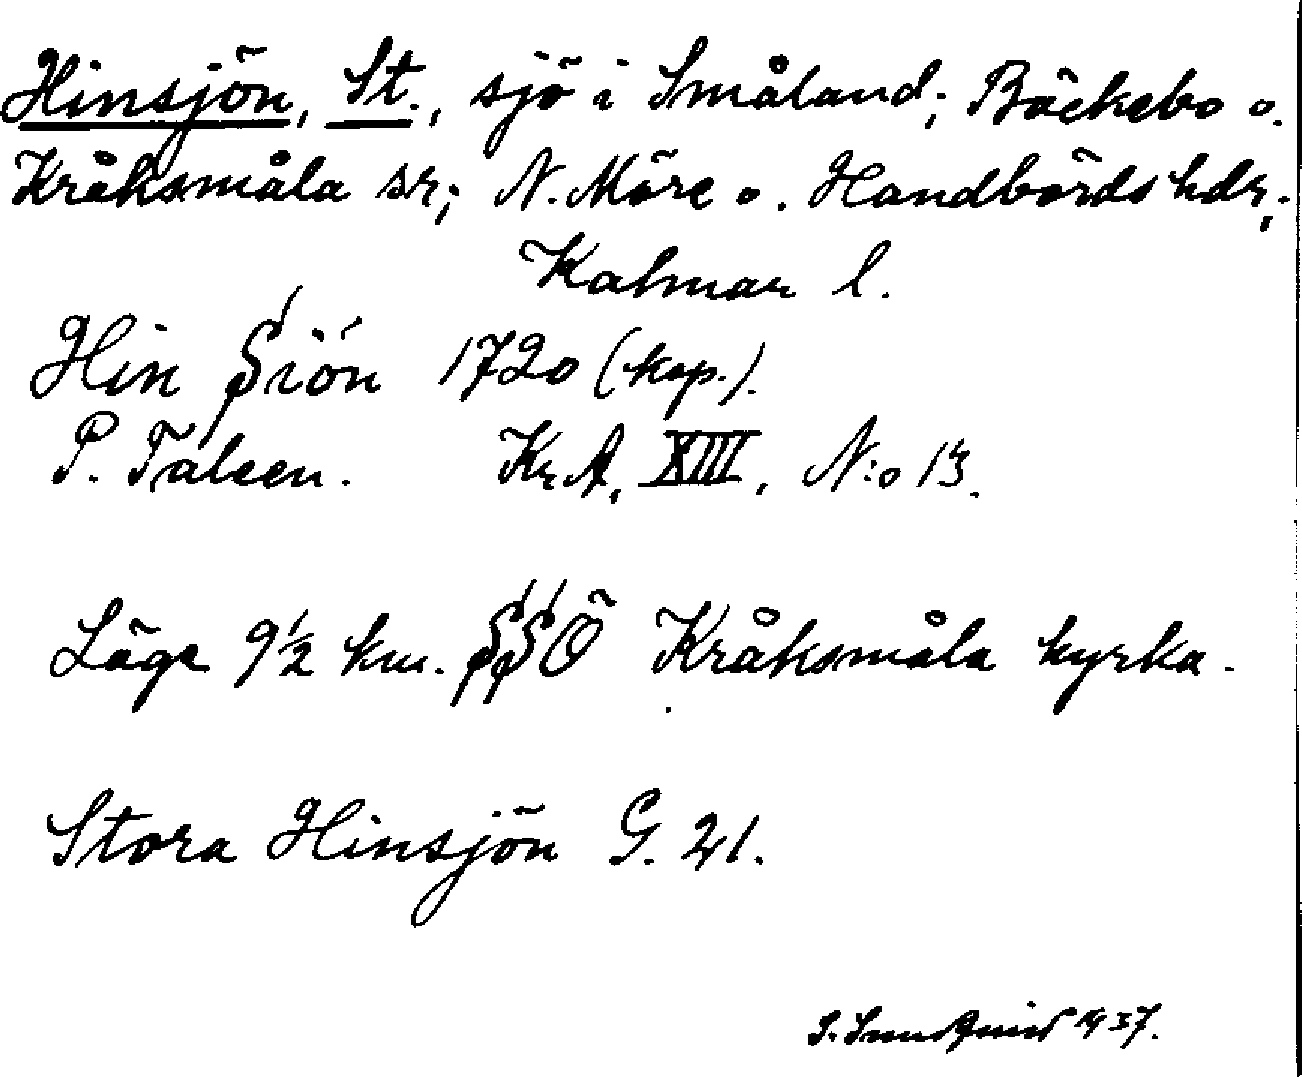 Hinsjön, St., sjö i Småland; Bäckebo o.
Kråksmåla snr; N. Möre o. Handbörds hdr;
Kalmar l.
Hin Siön 1720 (kop.).
P. Taleen. KrA, XIII, N:o 13.
Läge 9½ km. SSÖ Kråksmåla kyrka.
Stora Hinsjön G. 21.
1937.